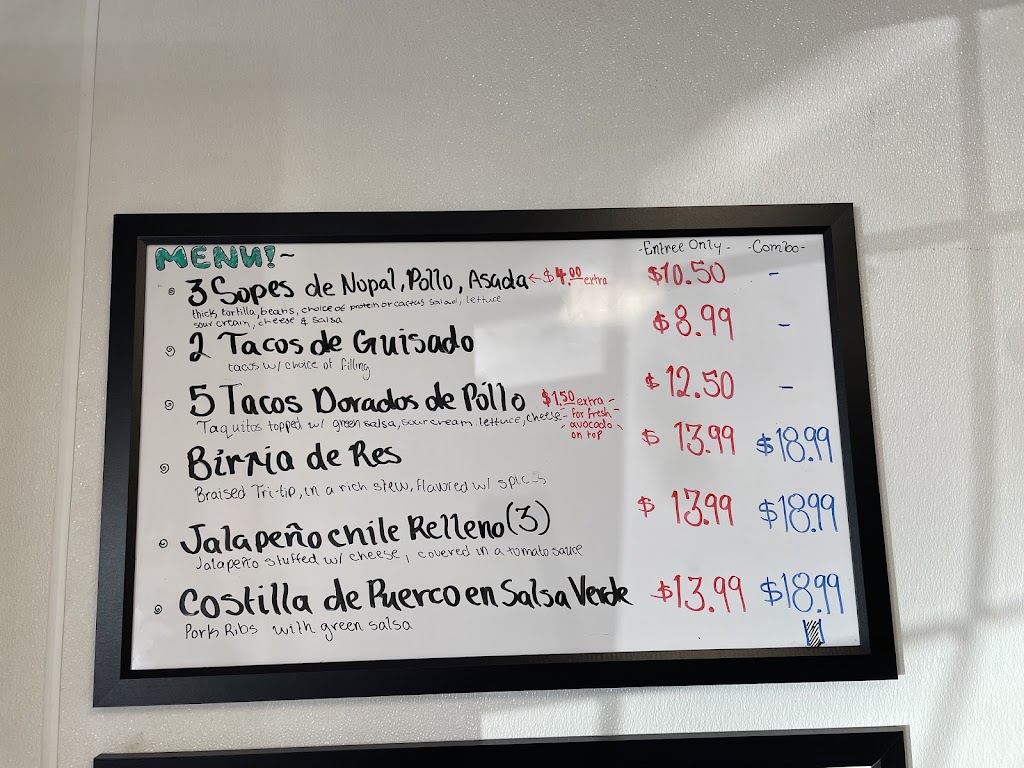 MENU!~
-Entree Only- -Combo-
3 Sopes de Nopal, Pollo, Asada ←$4.00 extra $10.50 -
thick tortilla, beans, choice of protein or cactus salad, lettuce
sour cream, cheese & salsa
2 Tacos de Guisado $8.99 -
tacos w/ choice of filling
5 Tacos Dorados de Pollo $12.50 -
$1.50 extra -
- for fresh -
- avocado -
on top
Taquitos topped w/ green salsa, sour cream, lettuce, cheese
Birria de Res $13.99 $18.99
Braised Tri-tip, in a rich stew, flavored w/
Jalapeño chile Relleno (3) $13.99 $18.99
Jalapeño stuffed w/ cheese, covered in a tomato sauce
Costilla de Puerco en Salsa Verde $13.99 $18.99
Pork Ribs with green salsa